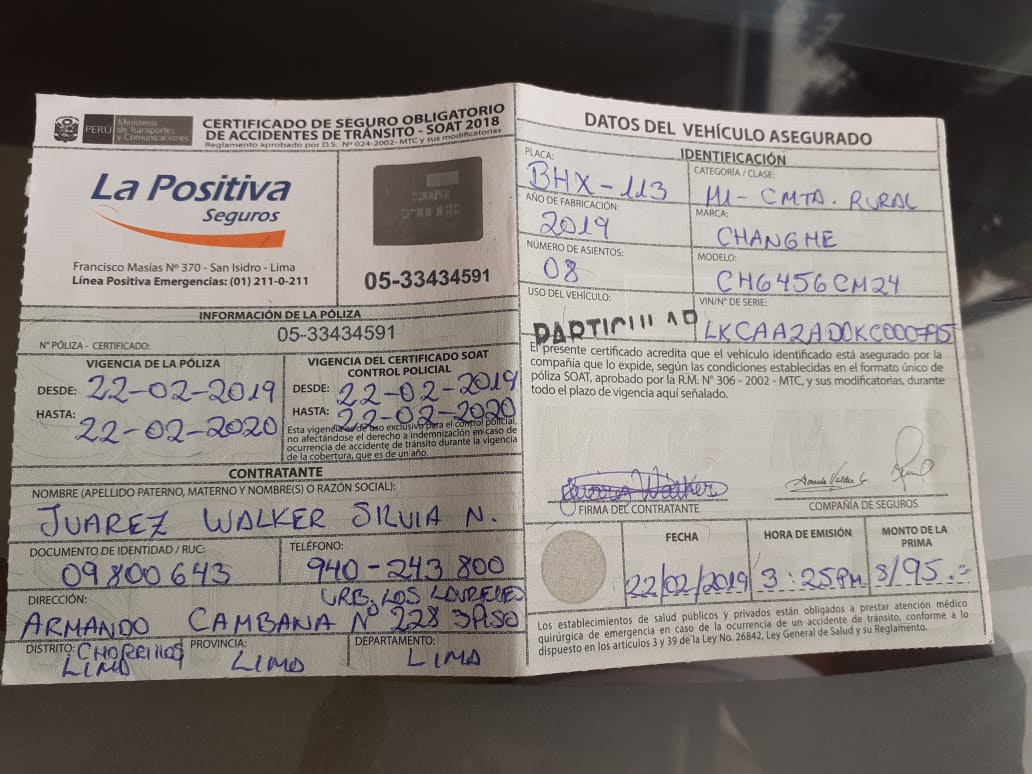 PERÚ
Ministerio
de Transportes
y Comunicaciones
CERTIFICADO DE SEGURO OBLIGATORIO
DE ACCIDENTES DE TRÁNSITO - SOAT 2018
Reglamento aprobado por D.S. Nº 024-2002- MTC y sus modificatorias
La Positiva
Seguros
Francisco Masías Nº 370 - San Isidro - Lima
Línea Positiva Emergencias: (01) 211-0-211
05-33434591
INFORMACIÓN DE LA PÓLIZA
Nº PÓLIZA - CERTIFICADO:
05-33434591
VIGENCIA DE LA PÓLIZA
DESDE: 22-02-2019
HASTA: 22-02-2020
VIGENCIA DEL CERTIFICADO SOAT
CONTROL POLICIAL
DESDE: 22-02-2019
HASTA: 22-02-2020
Esta vigencia es de uso exclusivo para el control policial,
no afectándose el derecho a indemnización en caso de
ocurrencia de accidente de tránsito durante la vigencia
de la cobertura, que es de un año.
CONTRATANTE
NOMBRE (APELLIDO PATERNO, MATERNO Y NOMBRE(S) O RAZÓN SOCIAL):
JUAREZ WALKER SILVIA N.
DOCUMENTO DE IDENTIDAD / RUC:
09800643
TELÉFONO:
940-243800
DIRECCIÓN:
URB. LOS LAURELES
ARMANDO CAMBANA Nº 228 3PISO
DISTRITO: CHORRILLOS
LIMA
PROVINCIA:
LIMA
DEPARTAMENTO:
LIMA
DATOS DEL VEHÍCULO ASEGURADO
IDENTIFICACIÓN
PLACA:
BHX-113
CATEGORÍA / CLASE:
M1 - CMTA. RURAL
AÑO DE FABRICACIÓN:
2019
MARCA:
CHANGHE
NÚMERO DE ASIENTOS:
08
MODELO:
CH6456CM24
USO DEL VEHÍCULO:
PARTICULAR
VIN/Nº DE SERIE:
El presente certificado acredita que el vehículo identificado está asegurado por la
compañía que lo expide, según las condiciones establecidas en el formato único de
póliza SOAT, aprobado por la R.M. Nº 306 - 2002 - MTC, y sus modificatorias, durante
todo el plazo de vigencia aquí señalado.
FIRMA DEL CONTRATANTE
COMPAÑÍA DE SEGUROS
FECHA
22/02/2019
HORA DE EMISIÓN
3:25PM
MONTO DE LA
PRIMA
S/95.=
Los establecimientos de salud públicos y privados están obligados a prestar atención médico
quirúrgica de emergencia en caso de la ocurrencia de un accidente de tránsito, conforme a lo
dispuesto en los artículos 3 y 39 de la Ley No. 26842, Ley General de Salud y su Reglamento.